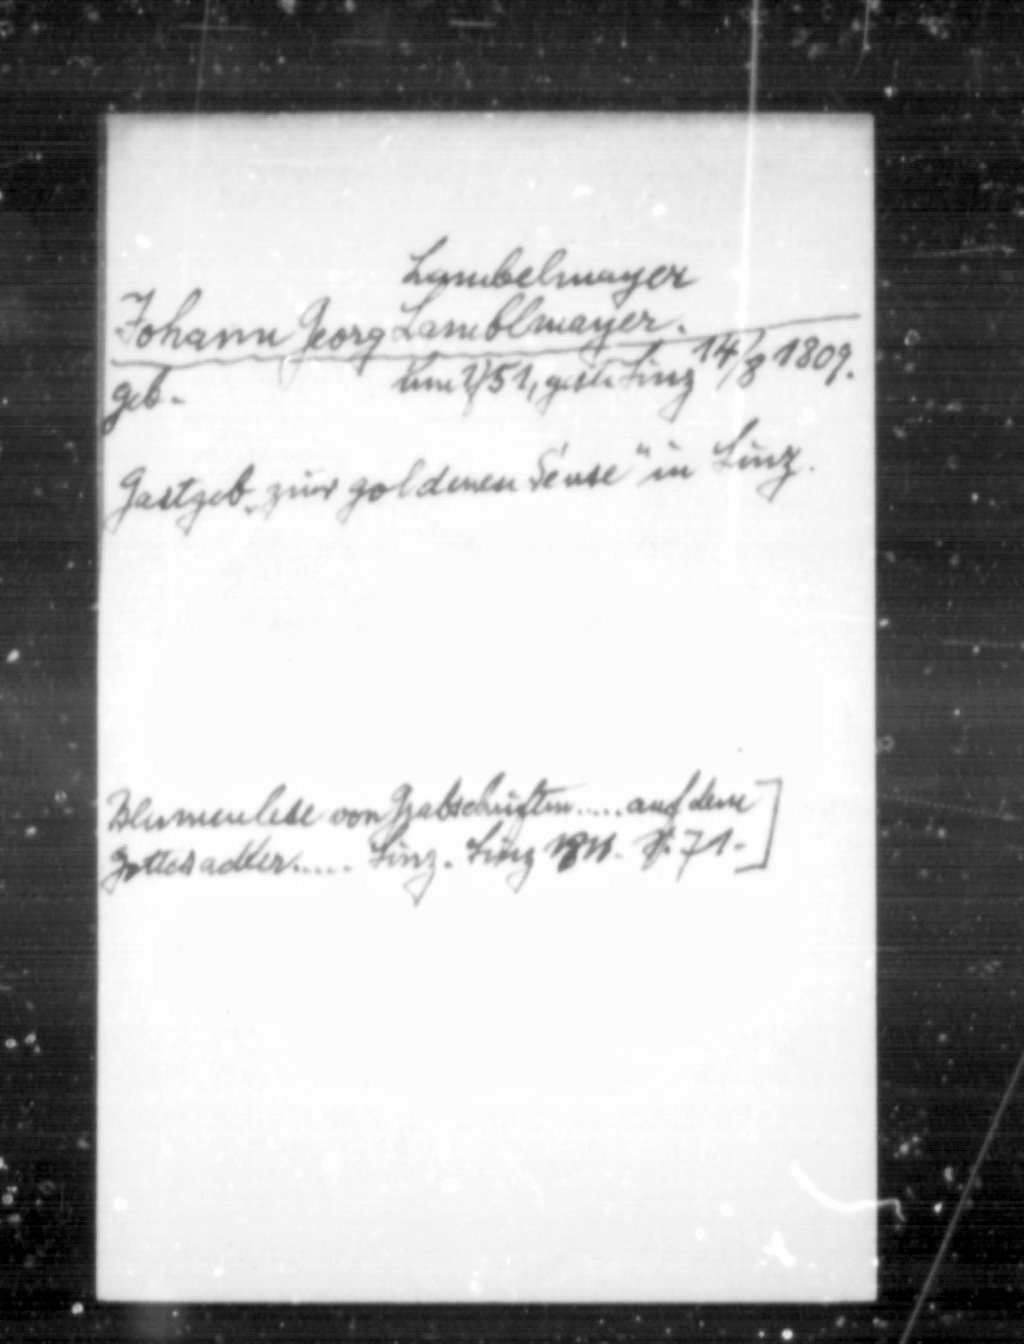 Lambelmayer
Johann Georg Lameblmayer.
geb. 1751, gest. Linz 14/8 1809.
Gastgeb „zur goldenen Sense" in Linz.
Blumenlese von Grabschriften..... auf dem
Gottesacker..... Linz. Linz 1811. S. 71.]